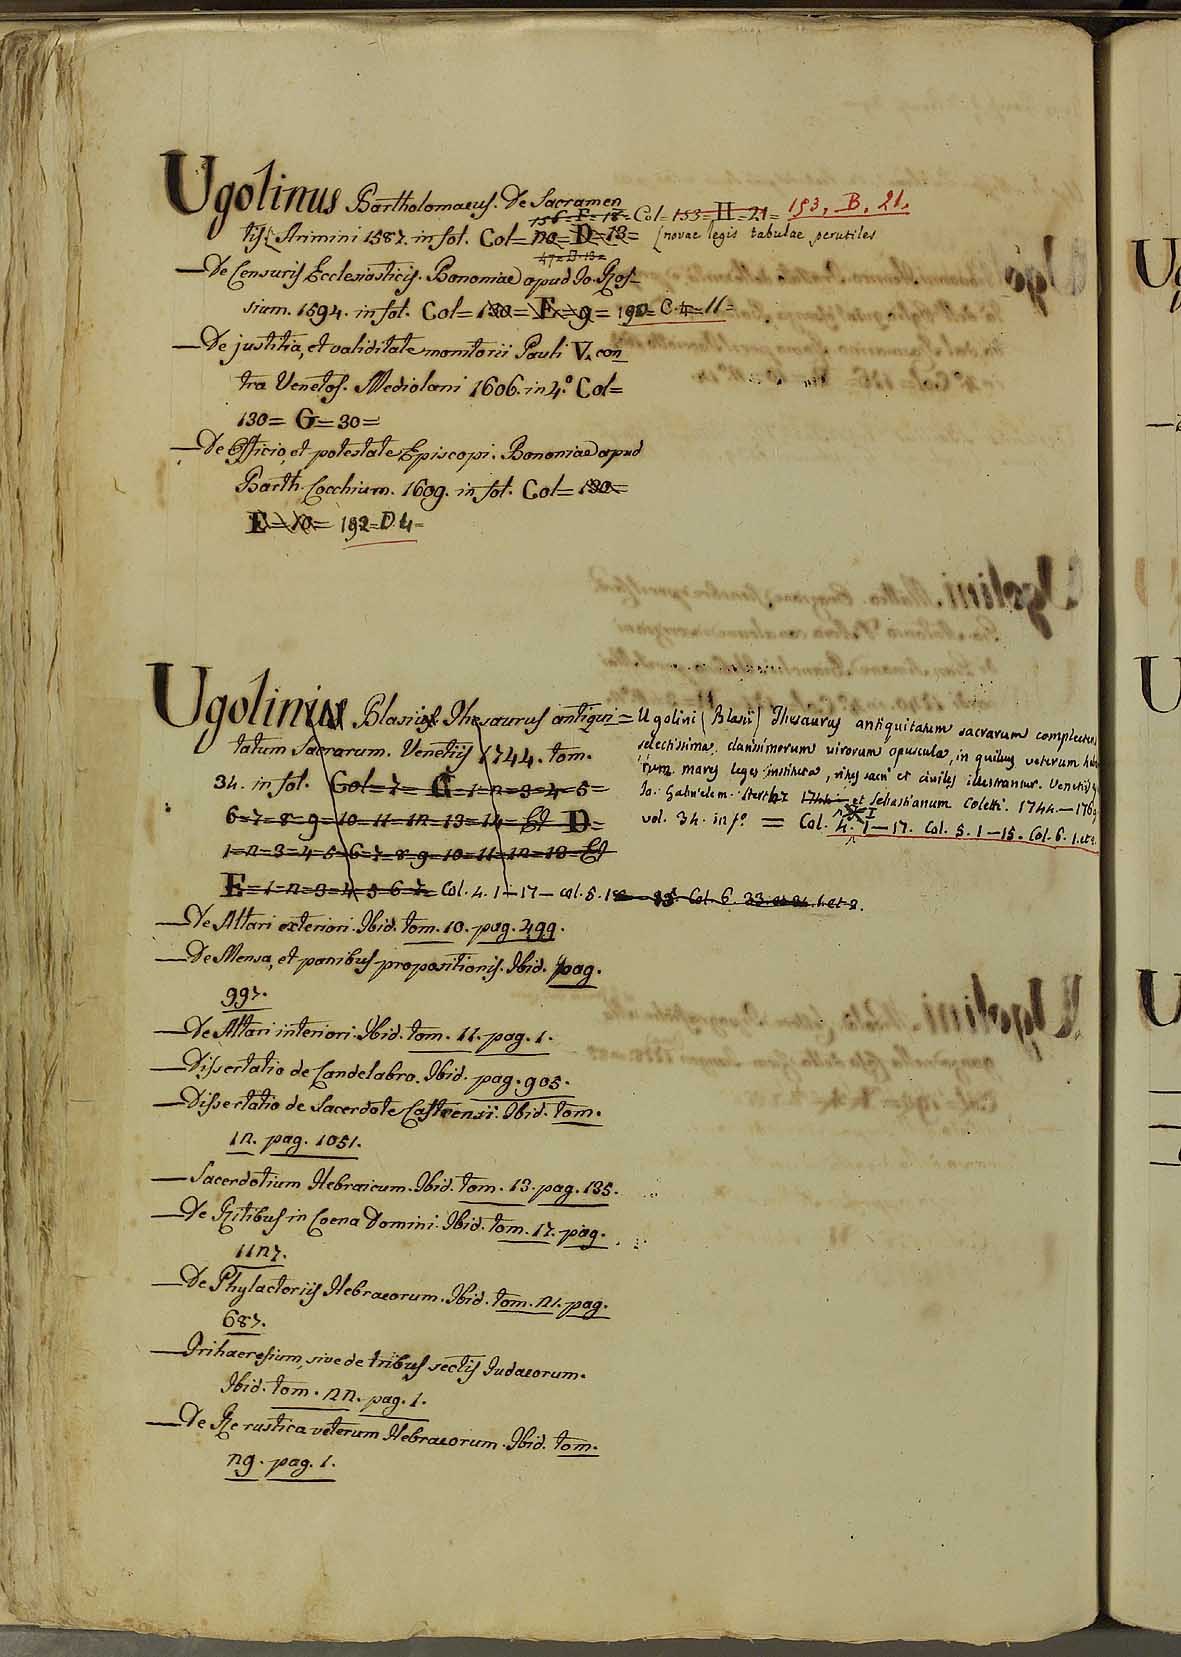 Ugolinus Bartholomaeus. De Sacramen
156=F=18= Col=153=H=21= 153. B. 21.
tis [Arimini 1587. in fol. Col= n0=D=13= [novae legis tabulae perutiles
47=D.13=
—De Censuris Ecclesiasticis. Bononiae apud Io. Ros-
sium. 1594. in fol. Col= 130=E=9= 190=C.4=11=
—De justitia, et validitate monitorii Pauli V. con
tra Venetos. Mediolani 1606. in 4.º Col=
130=G=30=
—De Officio, et potestate Episcopi. Bononiae apud
Barth. Cocchium. 1609. in fol. Col= 130=
E=10= 192=D.4=
Ugolinius Blasius Thesaurus antiqui=
tatum Sacrarum. Venetiis 1744. tom.
34. in fol. Col=7= C=1=n=3=4=5=
6=7=8=9=10=11=1n=13=14= D=
1=n=3=4=5=6=7=8=9=10=11=1n=13
E=1=n=3=4=5=6=7= Col. 4. 1—17— col. 5. Col. 6. 1. et 2.
Ugolini (Blasii) Thesaurus antiquitatum sacrarum complectens
selectissima clarissimorum virorum opuscula, in quibus veterum heb
rum mores leges instituta, ritus sacri et civiles illustrantur. Venetiis
Io. Gabrielem. Herthz 1744 et Sebastianum Coletti. 1744.—1769
vol. 34. in fº = Col. 4. 1—17. Col. 5. 1—15. Col. 6. 1. et 2.
—De Altari exteriori. Ibid. tom. 10. pag. 499.
—De Mensa, et panibus propositionis. Ibid. pag.
997.
—De Altari interiori. Ibid. tom. 11. pag. 1.
—Dissertatio de Candelabro. Ibid. pag. 905.
—Dissertatio de Sacerdote Castrensi. Ibid. tom.
1n. pag. 1051.
—Sacerdotium Hebraicum. Ibid. tom. 13. pag. 135.
—De Ritibus in Coena Domini. Ibid. tom. 17. pag.
11n7.
—De Phylacteriis Hebraeorum. Ibid. tom. n1. pag.
687.
—Trihaeresium, sive de tribus sectis Iudaeorum.
Ibid. tom. nn. pag. 1.
—De Re rustica veterum Hebraeorum. Ibid. tom.
n9. pag. 1.